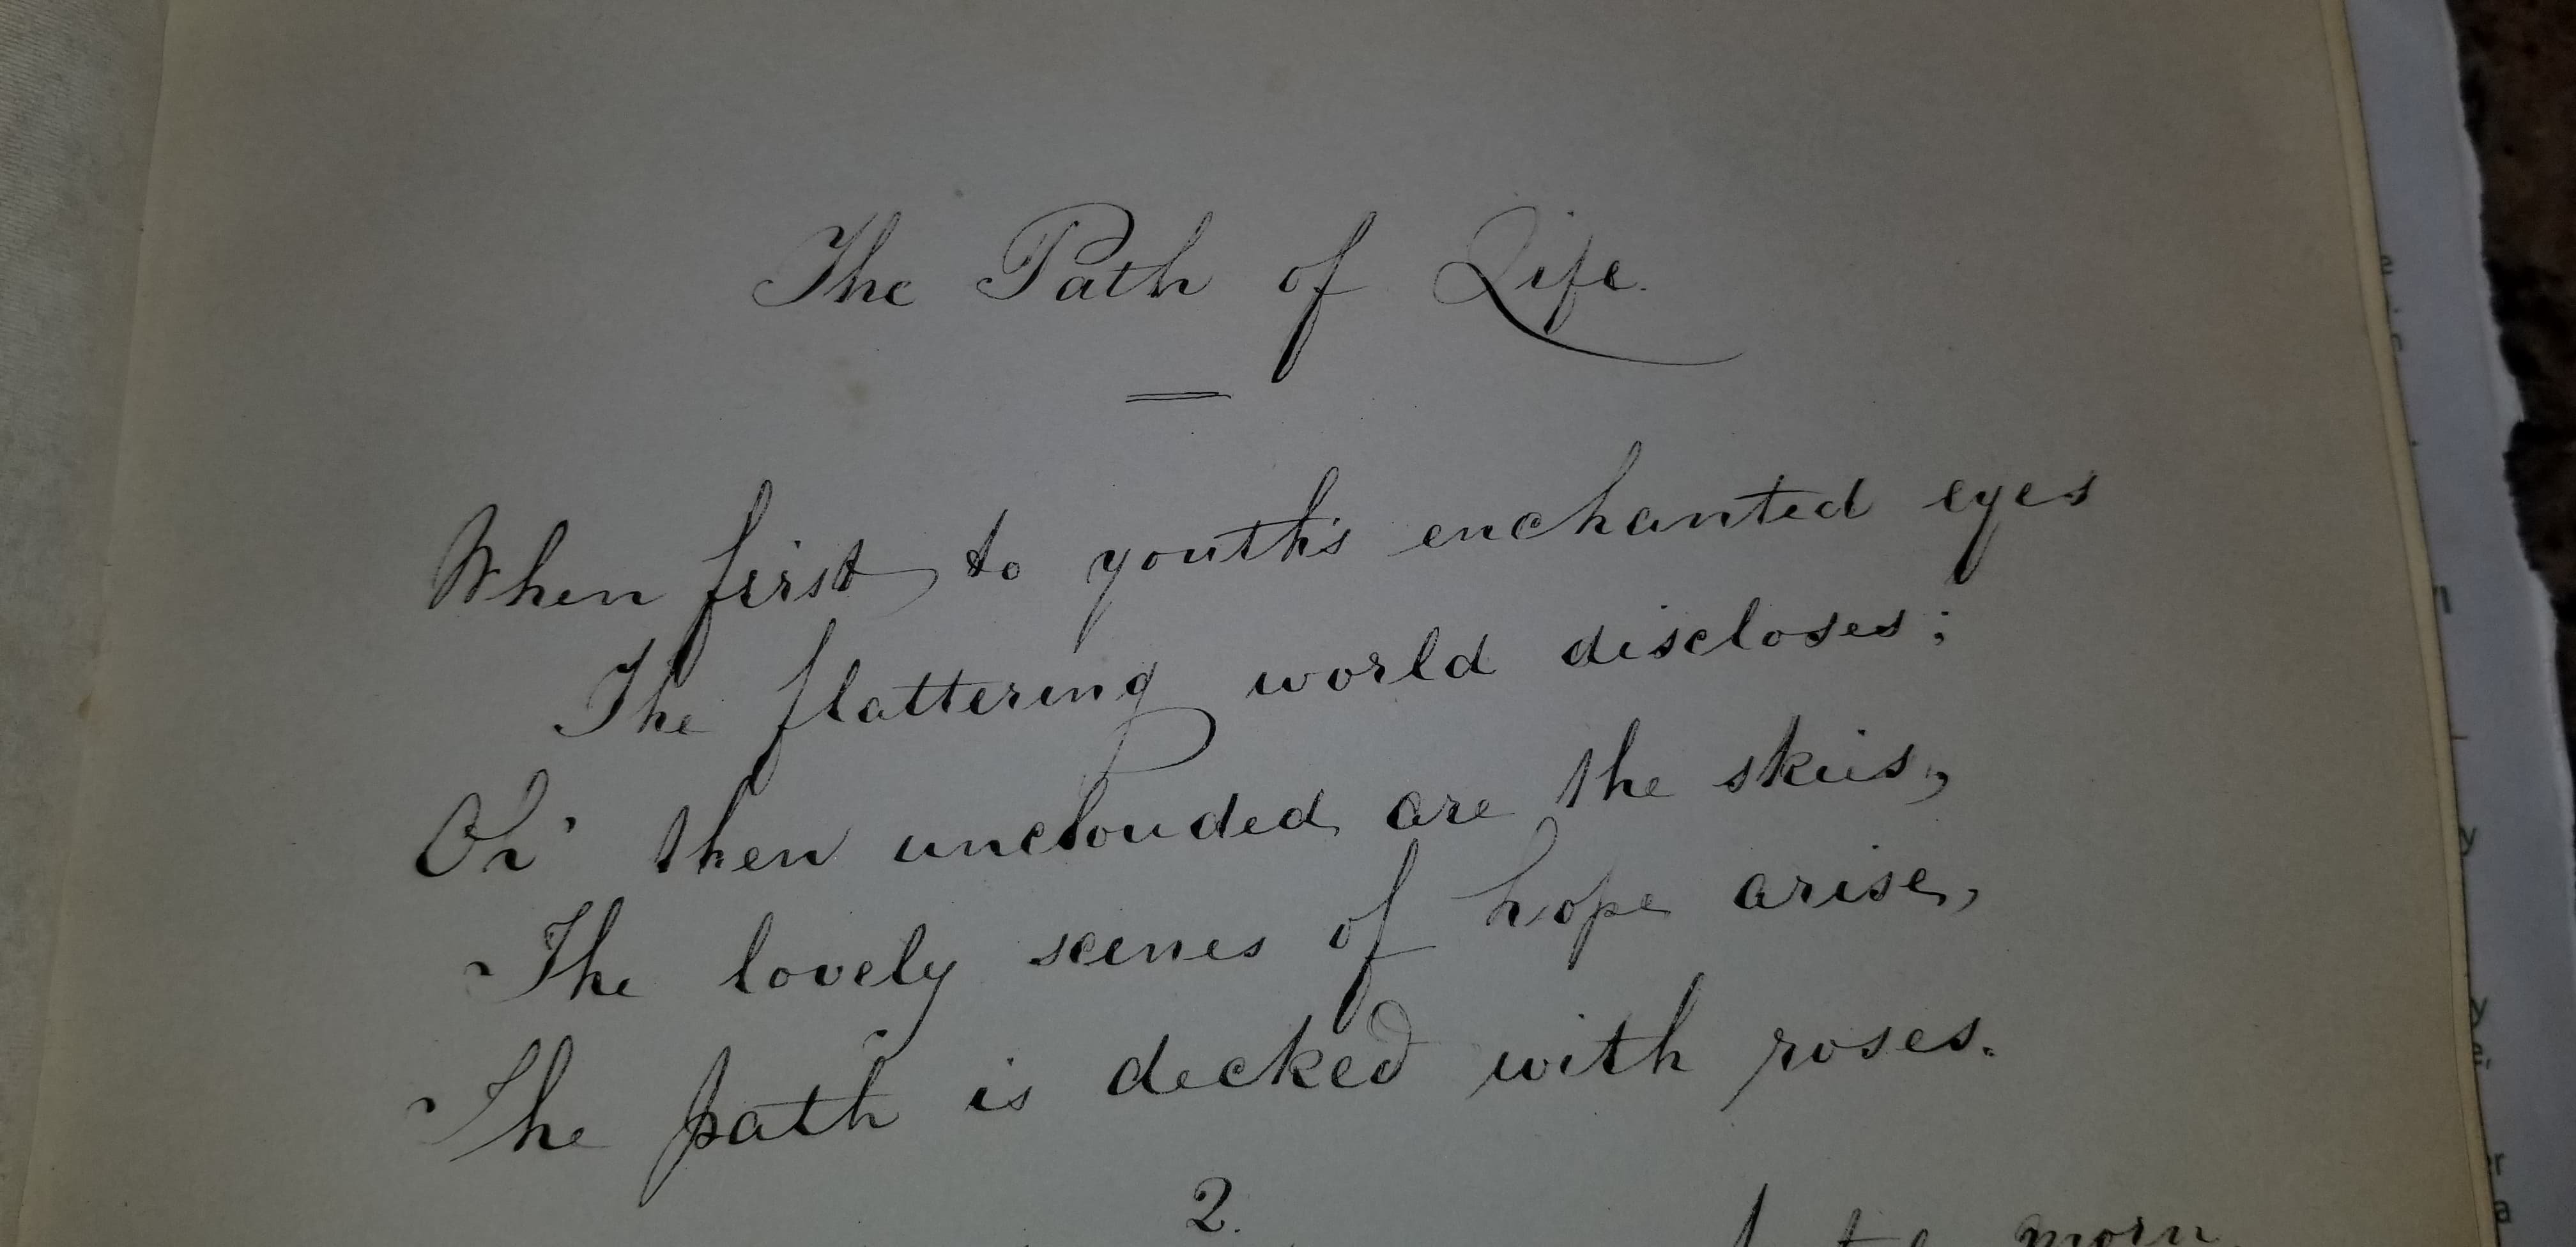 The Path of Life.
When first to youth's enchanted eyes
The flattering world discloses;
Oh' then unclouded are the skies,
The lovely scenes of hope arise,
The path is decked with roses.
2.
morn